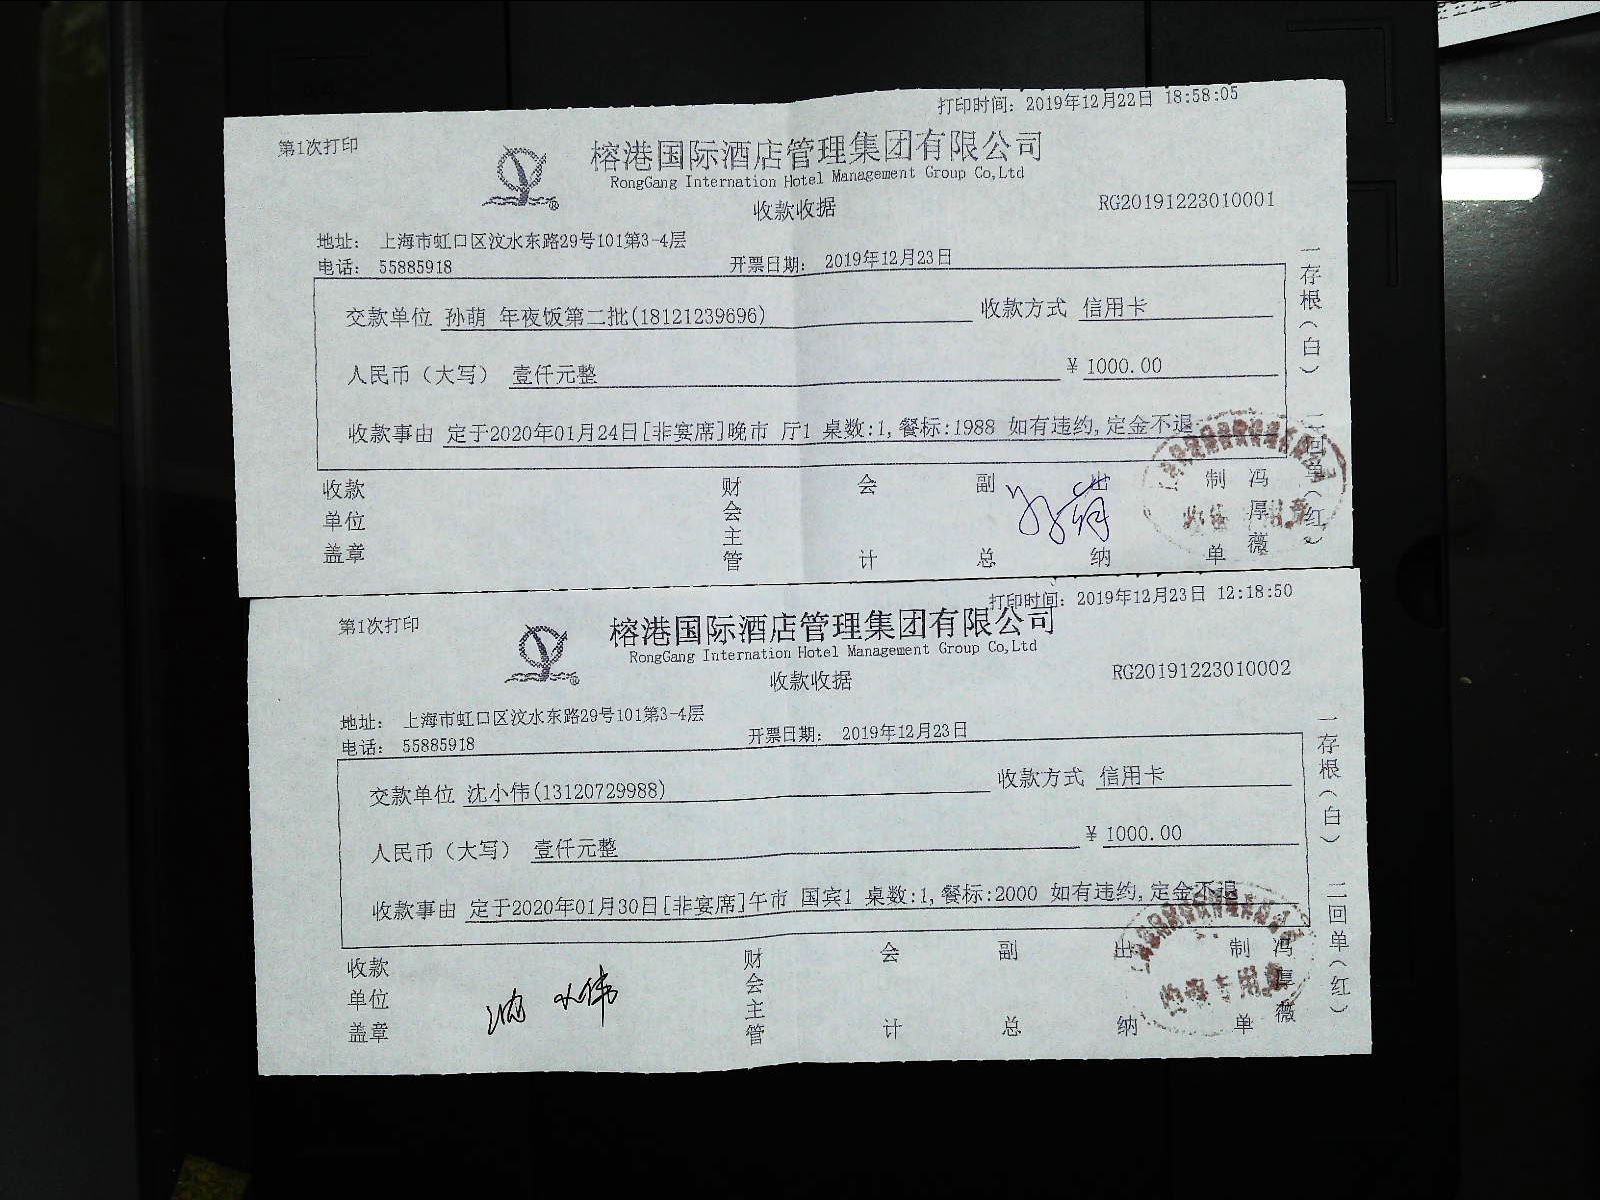 打印时间：2019年12月22日 18:58:05
第1次打印
榕港国际酒店管理集团有限公司
RongGang Internation Hotel Management Group Co,Ltd
收款收据
RG20191223010001
地址： 上海市虹口区汶水东路29号101第3-4层
电话： 55885918
开票日期： 2019年12月23日
交款单位 孙萌 年夜饭第二批(18121239696)
收款方式 信用卡
人民币（大写） 壹仟元整
¥ 1000.00
收款事由 定于2020年01月24日[非宴席]晚市 厅1 桌数:1,餐标:1988 如有违约,定金不退
一存根（白）
二回单（红）
收款单位盖章
财会主管
会计
副总
出纳
制单
冯厚薇
孙萌
打印时间：2019年12月23日 12:18:50
第1次打印
榕港国际酒店管理集团有限公司
RongGang Internation Hotel Management Group Co,Ltd
收款收据
RG20191223010002
地址： 上海市虹口区汶水东路29号101第3-4层
电话： 55885918
开票日期： 2019年12月23日
交款单位 沈小伟(13120729988)
收款方式 信用卡
人民币（大写） 壹仟元整
¥ 1000.00
收款事由 定于2020年01月30日[非宴席]午市 国宾1 桌数:1,餐标:2000 如有违约,定金不退
一存根（白）
二回单（红）
收款单位盖章
沈小伟
财会主管
会计
副总
出纳
制单
冯厚薇